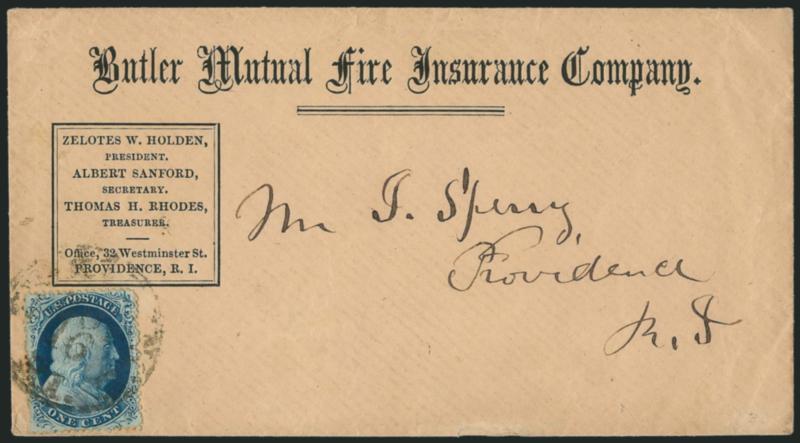 Butler Mutual Fire Insurance Company.
ZELOTES W. HOLDEN,
PRESIDENT.
ALBERT SANFORD,
SECRETARY.
THOMAS H. RHODES,
TREASURER.
Office, 32 Westminster St.
PROVIDENCE, R. I.
Mr I. Sperry,
Providence
R. I
U.S. POSTAGE
ONE CENT